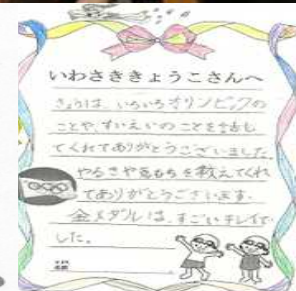 いわさききょうこさんへ
きょうは、いろいろオリンピックの
ことや、すいえいのことを話し
てくれてありがとうございました。
やるきや気もちを教えてくれ
てありがとうございます。
金メダルは、すごいキレイで
した。